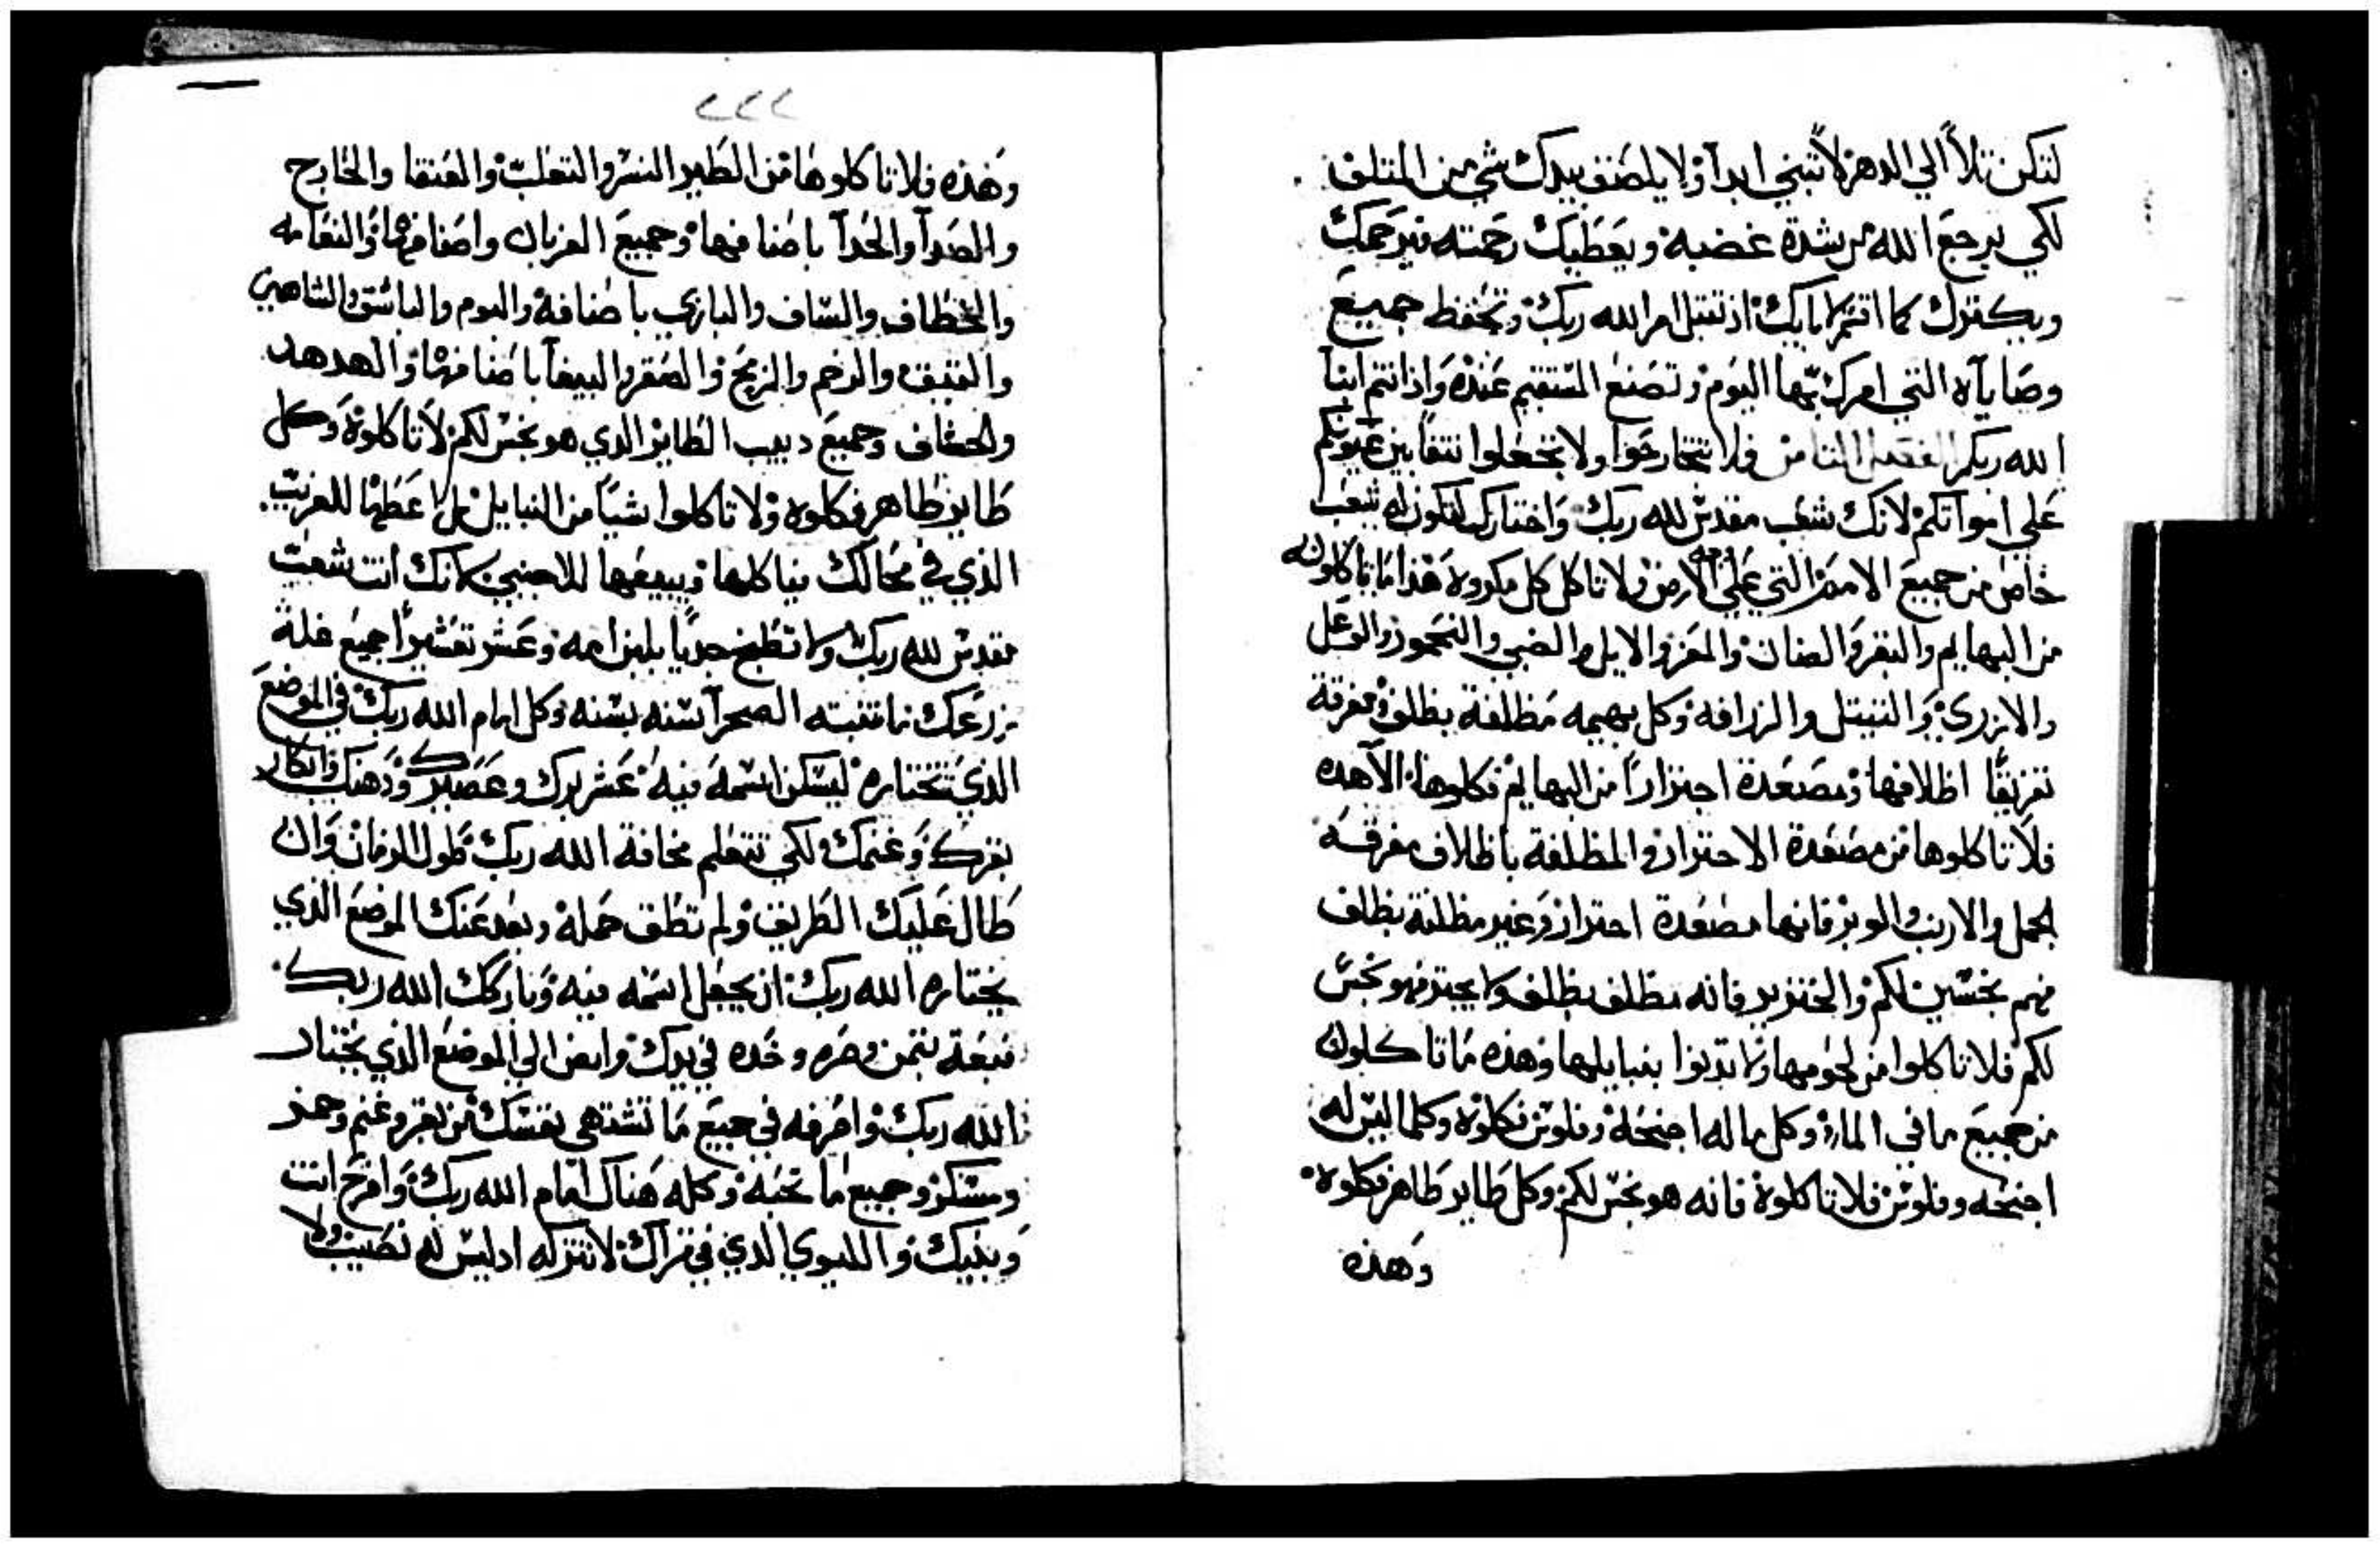 لتكن تلاً الي الدهر لا تبني ابداً ولا يلصق بيدك شي من المتلف
لكي يرجع الله من شدة غضبه ويعطيك رحمته فيرحمك
ويكترك كما اقسم لابايك اذ تقبل امر الله ربك وتحفظ جميع
وصاياه التي امرك بها اليوم وتصنع المستقيم عنده واذ انتم ابنا
الله ربكم الفصل الثامن فلا تتجارحوا ولا تجعلوا نتفا بين عيونكم
علي امواتكم لانك شعب مقدس لله ربك واختارك لتكون له شعب
خاص من جميع الامم التي علي وجه الارض ولا تاكل كل مكروه هذا ما تاكلونه
من البهايم والبقر والضان والمعز والايل والضبي واليحمور والوعل
والازري والتيتل والزرافه وكل بهيمه مظلفة بظلف ومفرقة
تفريقًا اظلافها ومصعدة اجترارًا من البهايم فكلوها الا هذه
فلا تاكلوها من مصعدة الاجترار والمظلفة باظلاف مفرقه
الجمل والارنب والوبر فانها مصعدة اجترار وغير مظلفة بظلف
فهم نجسين لكم والخنزير فانه مظلف بظلف ولا يجتر فهو نجس
لكم فلا تاكلوا من لحومها ولا تدنوا بنبايلها وهذه ما تاكلون
من جميع ما في الماء وكل ما له اجنحة وفلوس فكلوه وكلما ليس له
اجنحه وفلوس فلا تاكلوه فانه هو نجس لكم وكل طاير طاهر فكلوه
وهذه
٢٢٢
وهذه فلا تاكلوها من الطير النسر والتعلب والعنقا والخارج
والصدا والحدا باصنافها وجميع الغربان واصنافها والنعامه
والخطاف والساف والبازي باصنافه والبوم والباشق والشاهين
والققيق والرخم والزمج والصقر والببغا باصنافها والهدهد
والخشاف وجميع دبيب الطاير الذي هو نجس لكم لا تاكلوه وكل
طاير طاهر فكلوه ولا تاكلوا شيًا من النبايل بل اعطها للغريب
الذي في محالك فياكلها ويبيعها للاجنبي لانك انت شعب
مقدس لله ربك ولا تطبخ جديًا بلبن امه وعشر تعشيرًا جميع غلة
زرعك ما تنبته الصحرا سنه بسنه وكل امام الله ربك في الموضع
الذي تختاره ليسكن اسمه فيه عشر برك وعصيرك ودهنك وابكار
بقرك وغنمك ولكي تتعلم مخافة الله ربك طول الزمان وان
طال عليك الطريق ولم تطق حمله وبعد عنك الموضع الذي
يختاره الله ربك ان يجعل اسمه فيه وباركك الله ربك
فبعه بثمن وصره وخذه في يدك وامض الي الموضع الذي يختار
الله ربك واصرفه في جميع ما تشتهي نفسك من بقر وغنم وخمر
ومسكر وجميع ما تحبه وكله هناك امام الله ربك وافرح انت
وبنيك والليوي الذي في قراك لا تتركه اد ليس له نصيب ولا